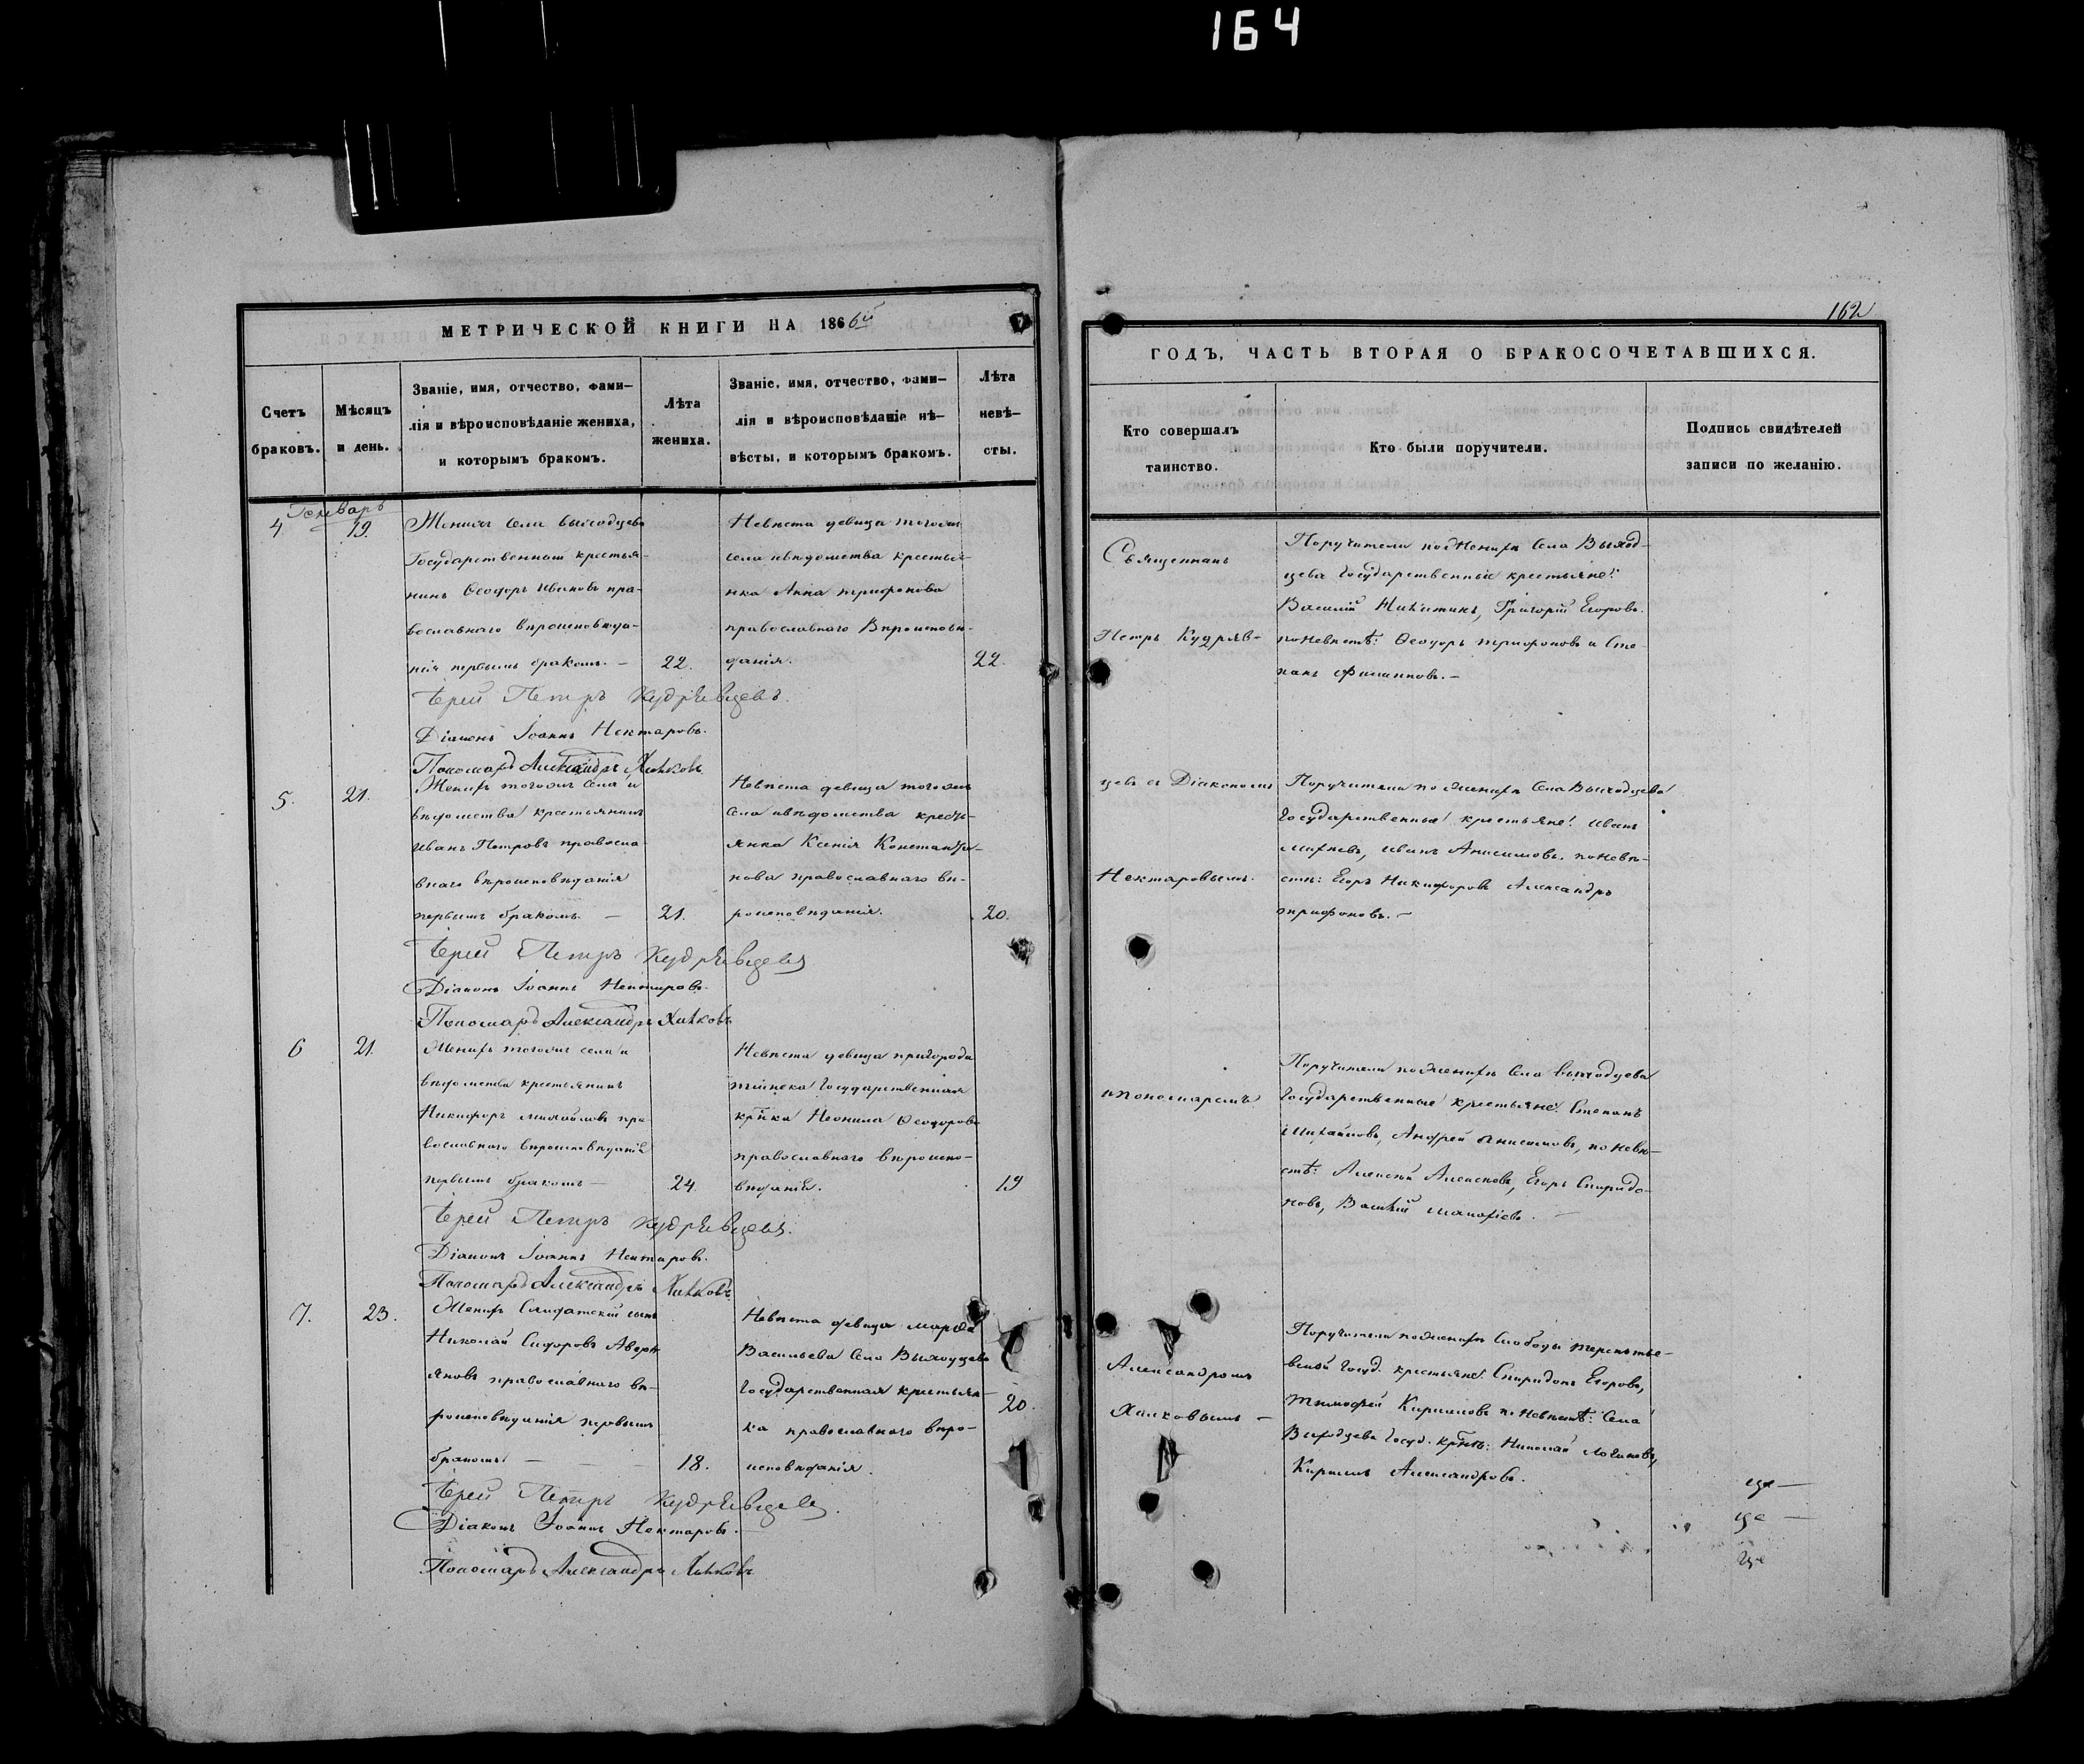 164
МЕТРИЧЕСКОЙ КНИГИ НА 1866й
Счетъ браковъ.
Мѣсяцъ и день.
Званіе, имя, отчество, фами-
лія и вѣроисповѣданіе жениха,
и которымъ бракомъ.
Лѣта
жениха.
Званіе, имя, отчество, фами-
лія и вѣроисповѣданіе нѣ-
вѣсты, и которымъ бракомъ.
Лѣта
невѣ-
сты.
Генварь
4. 19.
Женихъ села Выходцева
Государственный крестья-
нинъ Ѳеодоръ Ивановъ пра-
вославнаго вѣроисповѣда-
нія первымъ бракомъ. —
22.
Невѣста девица тогоже
села и вѣдомства крестья-
нка Анна Трифонова
православнаго вѣроисповѣ-
данія.
22.
Іерей Петръ Кудрявцевъ.
Діаконъ Іоаннъ Нектаровъ.
Пономарь Александръ
5. 21.
Женихъ тогоже села и
вѣдомства крестьянинъ
Иванъ Петровъ правосла-
внаго вѣроисповѣданія
первымъ бракомъ. —
21.
Невѣста девица тогоже
села и вѣдомства кресть-
янка Ксенія Константи-
нова православнаго вѣ-
роисповѣданія.
20.
Іерей Петръ Кудрявцевъ
Діаконъ Іоаннъ Нектаровъ.
Пономарь Александръ
6 21.
Женихъ тогоже села и
вѣдомства крестьянинъ
Никифоръ Михайловъ пра-
вославнаго вѣроисповѣданія
первымъ бракомъ —
24.
Невѣста девица пригорода
Государственная
кр-нка Неонила Ѳеодорова
православнаго вѣроиспо-
вѣданія.
19
Іерей Петръ Кудрявцевъ.
Діаконъ Іоаннъ Нектаровъ.
Пономарь Александръ
7. 23.
Женихъ Солдатскій сынъ
Николай Сидоровъ Аверь-
яновъ православнаго вѣ-
роисповѣданія первымъ
бракомъ —
18.
Невѣста девица Марѳа
Васильева села Выходцева
Государственная крестьян-
ка православнаго вѣро-
исповѣданія.
20.
Іерей Петръ Кудрявцевъ.
Діаконъ Іоаннъ Нектаровъ.
Пономарь Александръ
162
ГОДЪ, ЧАСТЬ ВТОРАЯ О БРАКОСОЧЕТАВШИХСЯ.
Кто совершалъ
таинство.
Кто были поручители.
Подпись свидѣтелей
записи по желанію.
Священникъ
Петръ Кудряв-
цевъ съ Діакономъ
Нектаровымъ
и пономаремъ
Александромъ
Поручители по женихѣ Села Выход-
цева Государственные крестьяне:
Василій Никитинъ, Григорій Егоровъ.
по невѣстѣ: Ѳеодоръ Трифоновъ и Сте-
панъ Филиповъ. —
Поручители по женихѣ Села Выходцева
Государственные крестьяне: Иванъ
Иванъ Анисимовъ, по невѣ-
стѣ: Егоръ Никифоровъ Александръ
Трифоновъ. —
Поручители по женихѣ Села Выходцева
Государственные крестьяне: Степанъ
Михайловъ, Андрей Анисимовъ, по невѣ-
стѣ: Алексѣй Алексѣевъ, Егоръ Спиридо-
новъ, Василій —
Поручители по женихѣ Слободы
Госуд. крестьяне: Спиридонъ Егоровъ,
Тимофей Кириловъ по невѣстѣ: Села
Выходцева Госуд. кр-не: Николай Логиновъ,
Кирилъ Александровъ.